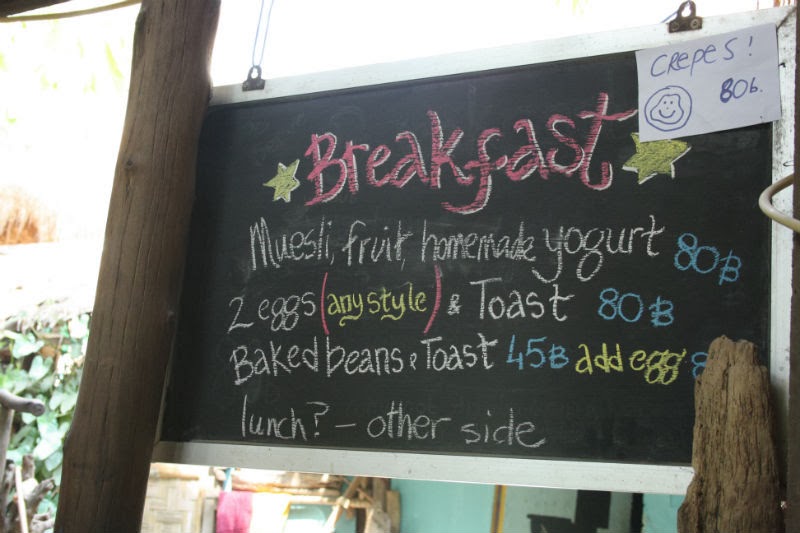 CREPES!
80b.
Breakfast
Muesli, fruit, homemade yogurt 80฿
2 eggs (any style) & Toast 80฿
Baked beans & Toast 45฿ add egg
lunch? - other side